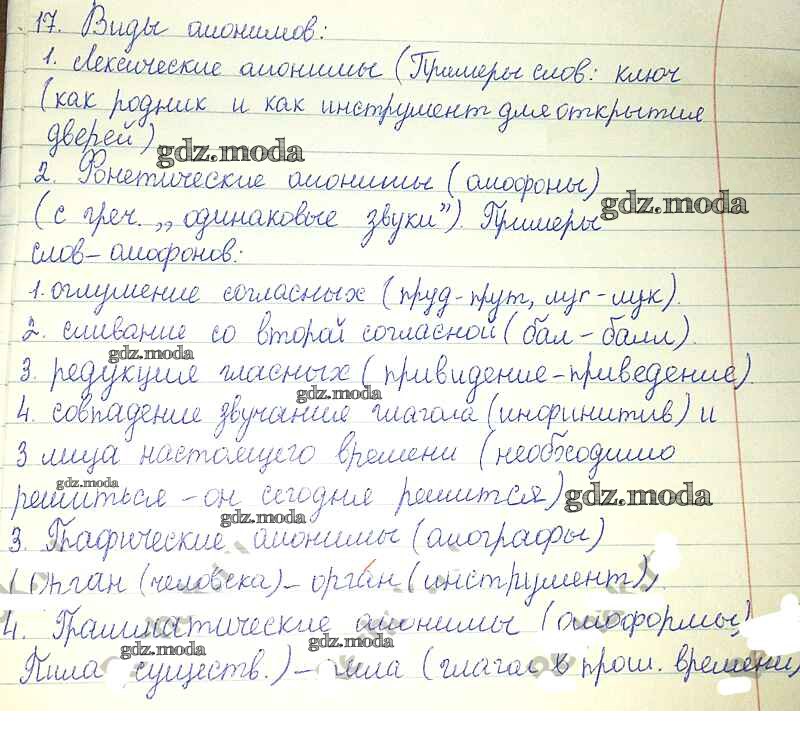 17. Виды омонимов:
1. Лексические омонимы (Примеры слов: ключ
(как родник и как инструмент для открытия
дверей)
gdz.moda
2. Фонетические омонимы (омофоны)
gdz.moda
(с греч. „одинаковые звуки”). Примеры
слов-омофонов:
1. оглушение согласных (пруд-прут, луг-лук).
2. сливание со второй согласной (бал-балл).
gdz.moda
3. редукция гласных (привидение-приведение).
gdz.moda
4. совпадение звучания глагола (инфинитив) и
3 лица настоящего времени (необходимо
gdz.moda
решиться - он сегодня решится)
gdz.moda
gdz.moda
3. Графические омонимы (омографы)
(Орган (человека) - орган (инструмент),
4. Грамматические омонимы (омоформы)
gdz.moda
gdz.moda
Пила существ.) - пила (глагол в прош. времени)